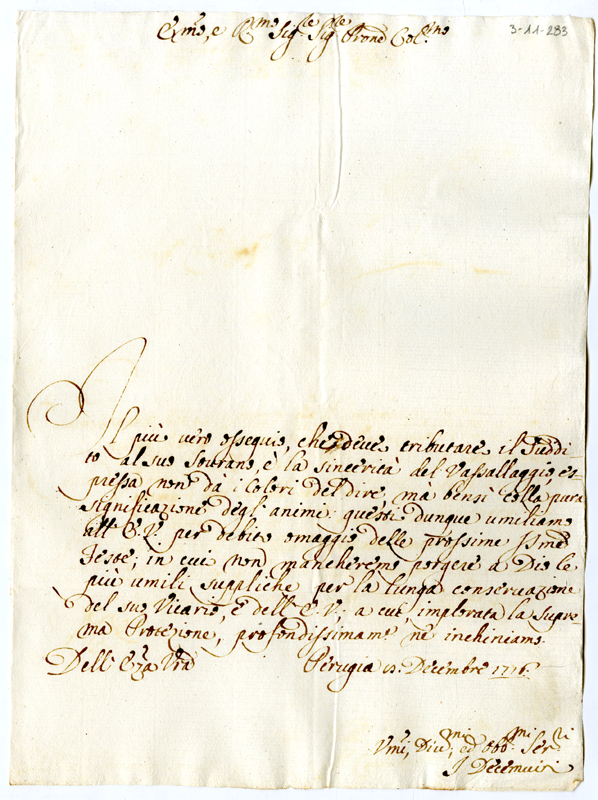 Em̃o, e R̃mo Sig.le Sig.le Prone Col.mo
3-11-283
Il più vero ossequio, che deve tributare il Suddi-
to al suo Sourano, è la sincerità del Vassallaggio, es-
pressa non dà i Colori del dire, mà bensì colla pura
significazione degl'animi: questi dunque umiliamo
all'E.V. per debito omaggio delle prossime SSme
Feste; in cui non mancheremo porgere a Dio le
più umili suppliche per la lunga conservazione
del suo Vicario, e dell'E.V., a cui, implorata la Supre-
ma Protezione, profondissimam.e ne inchiniamo.
Dell'E͂za Vrã Perugia Decembre 1716.
Vmi, Diu.mi, ed obb.mi Ser.ri
I Decemuiri